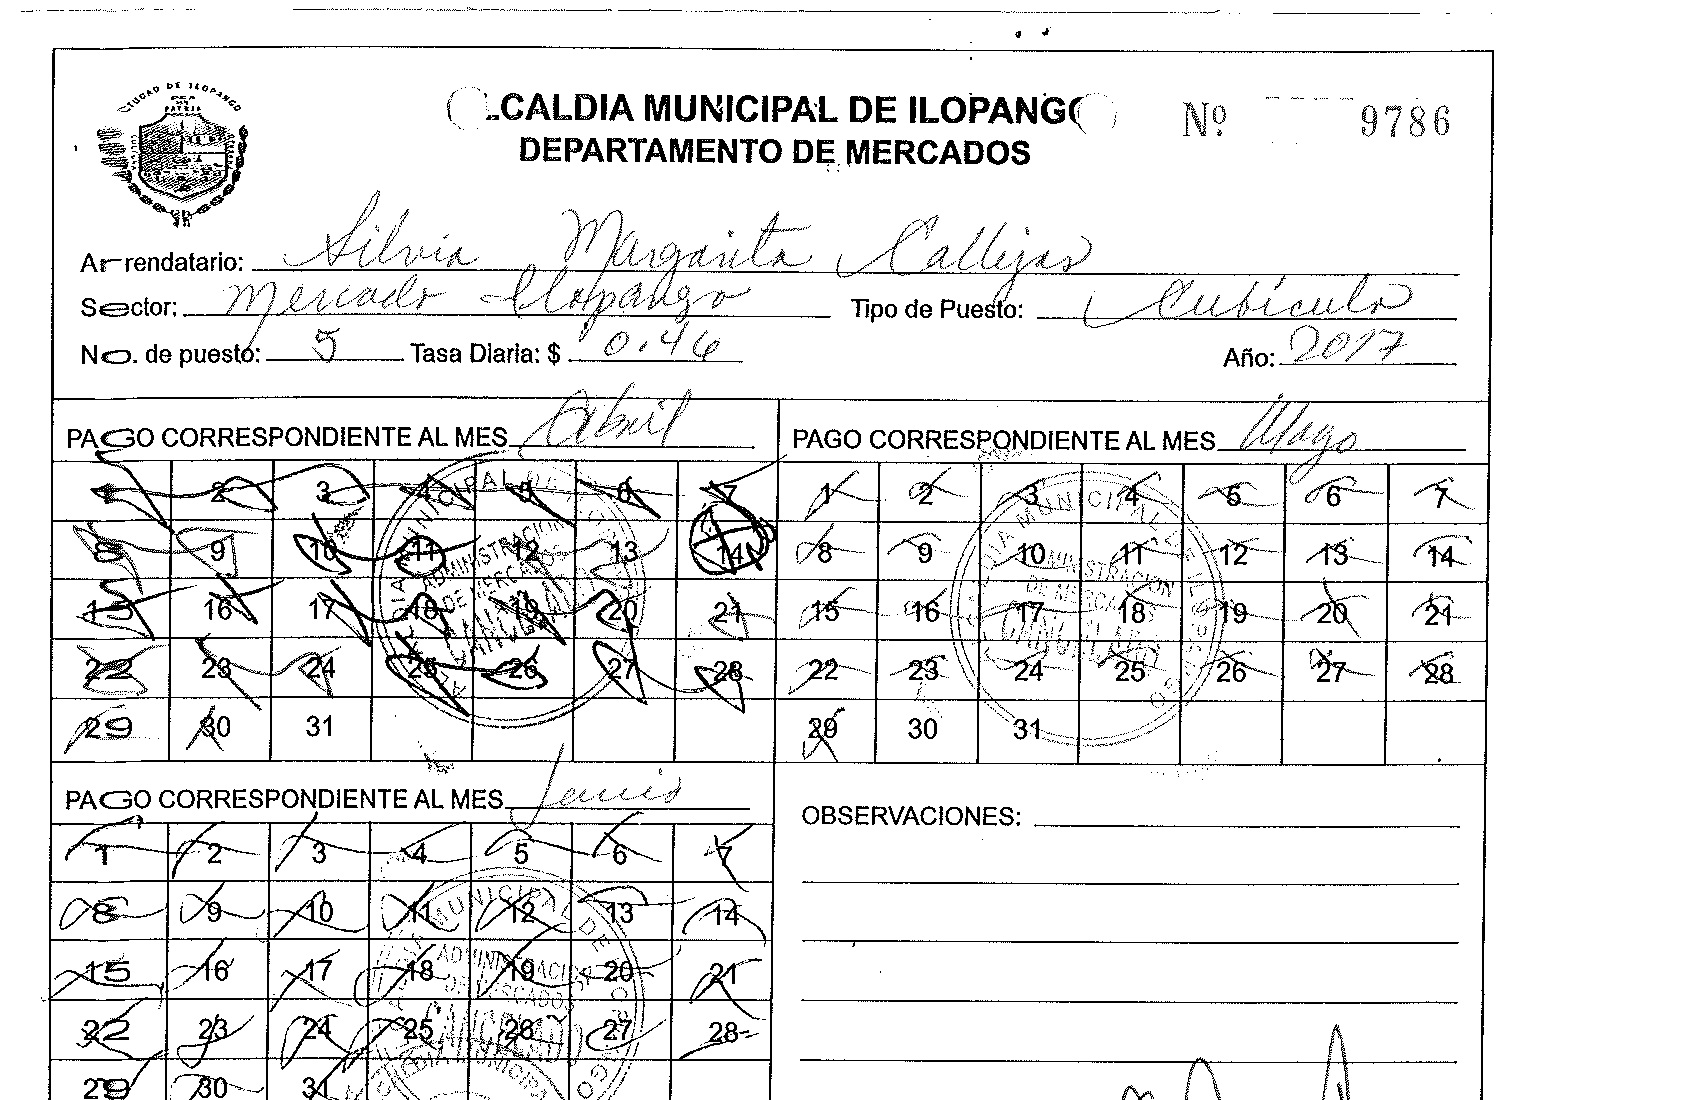 CIUDAD DE ILOPANGO
ALCALDIA MUNICIPAL DE ILOPANGO
Nº 9786
DEPARTAMENTO DE MERCADOS
Arrendatario: Silvia Margarita Callejas
Sector: Mercado Ilopango Tipo de Puesto: Cubículo
No. de puesto: 5 Tasa Diaria: $ 0.46 Año: 2017
PAGO CORRESPONDIENTE AL MES Abril
1 2 3 4 5 6 7
8 9 10 11 12 13 14
15 16 17 18 19 20 21
22 23 24 25 26 27 28
29 30 31
ADMINISTRACION
DE MERCADOS
CANCELADO
PAGO CORRESPONDIENTE AL MES Mayo
1 2 3 4 5 6 7
8 9 10 11 12 13 14
15 16 17 18 19 20 21
22 23 24 25 26 27 28
29 30 31
ADMINISTRACION
DE MERCADOS
CANCELADO
PAGO CORRESPONDIENTE AL MES Junio
1 2 3 4 5 6 7
8 9 10 11 12 13 14
15 16 17 18 19 20 21
22 23 24 25 26 27 28
29 30 31
ADMINISTRACION
DE MERCADOS
CANCELADO
OBSERVACIONES: